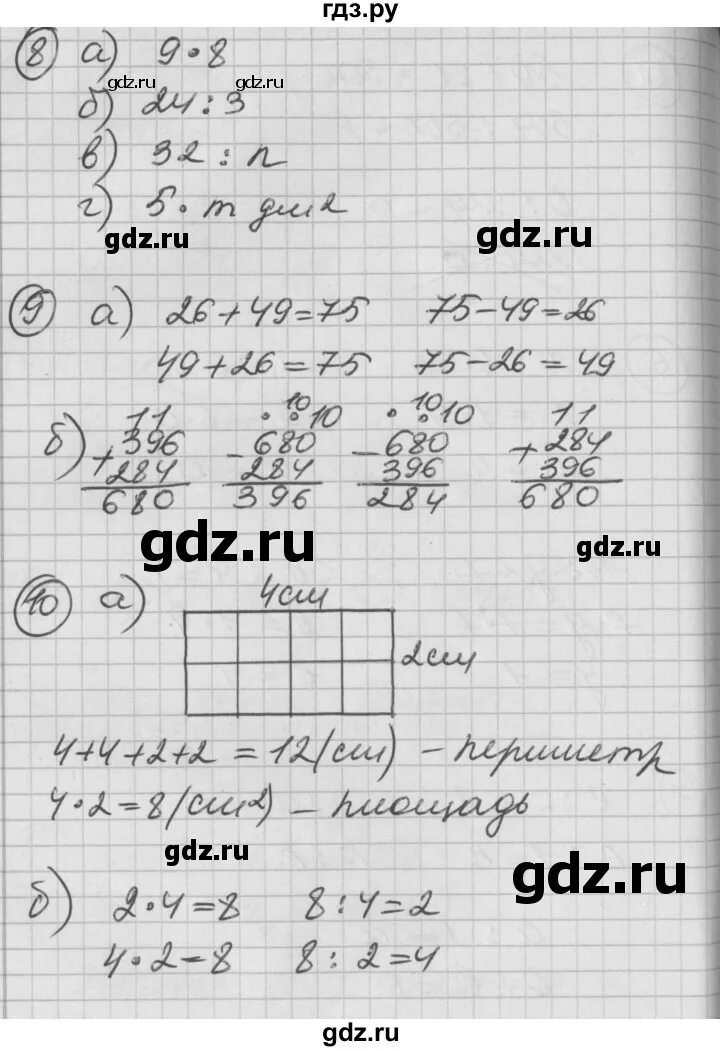 гдз.ру
8 а) 9·8
gdz.ru gdz.ru
б) 24:3
в) 32:n
г) 5·m дм2
gdz.ru gdz.ru
9 а) 26+49=75 75-49=26
49+26=75 75-26=49
11 · 10 · 10 · 10 · 10 11
б) +396 -680 -680 +284
284 284 396 396
680 396 284 680
gdz.ru gdz.ru
10 а) 4см
2см
4+4+2+2=12(см) - периметр
4·2=8(см2) - площадь
gdz.ru gdz.ru
б) 2·4=8 8:4=2
4·2=8 8:2=4
gdz.ru